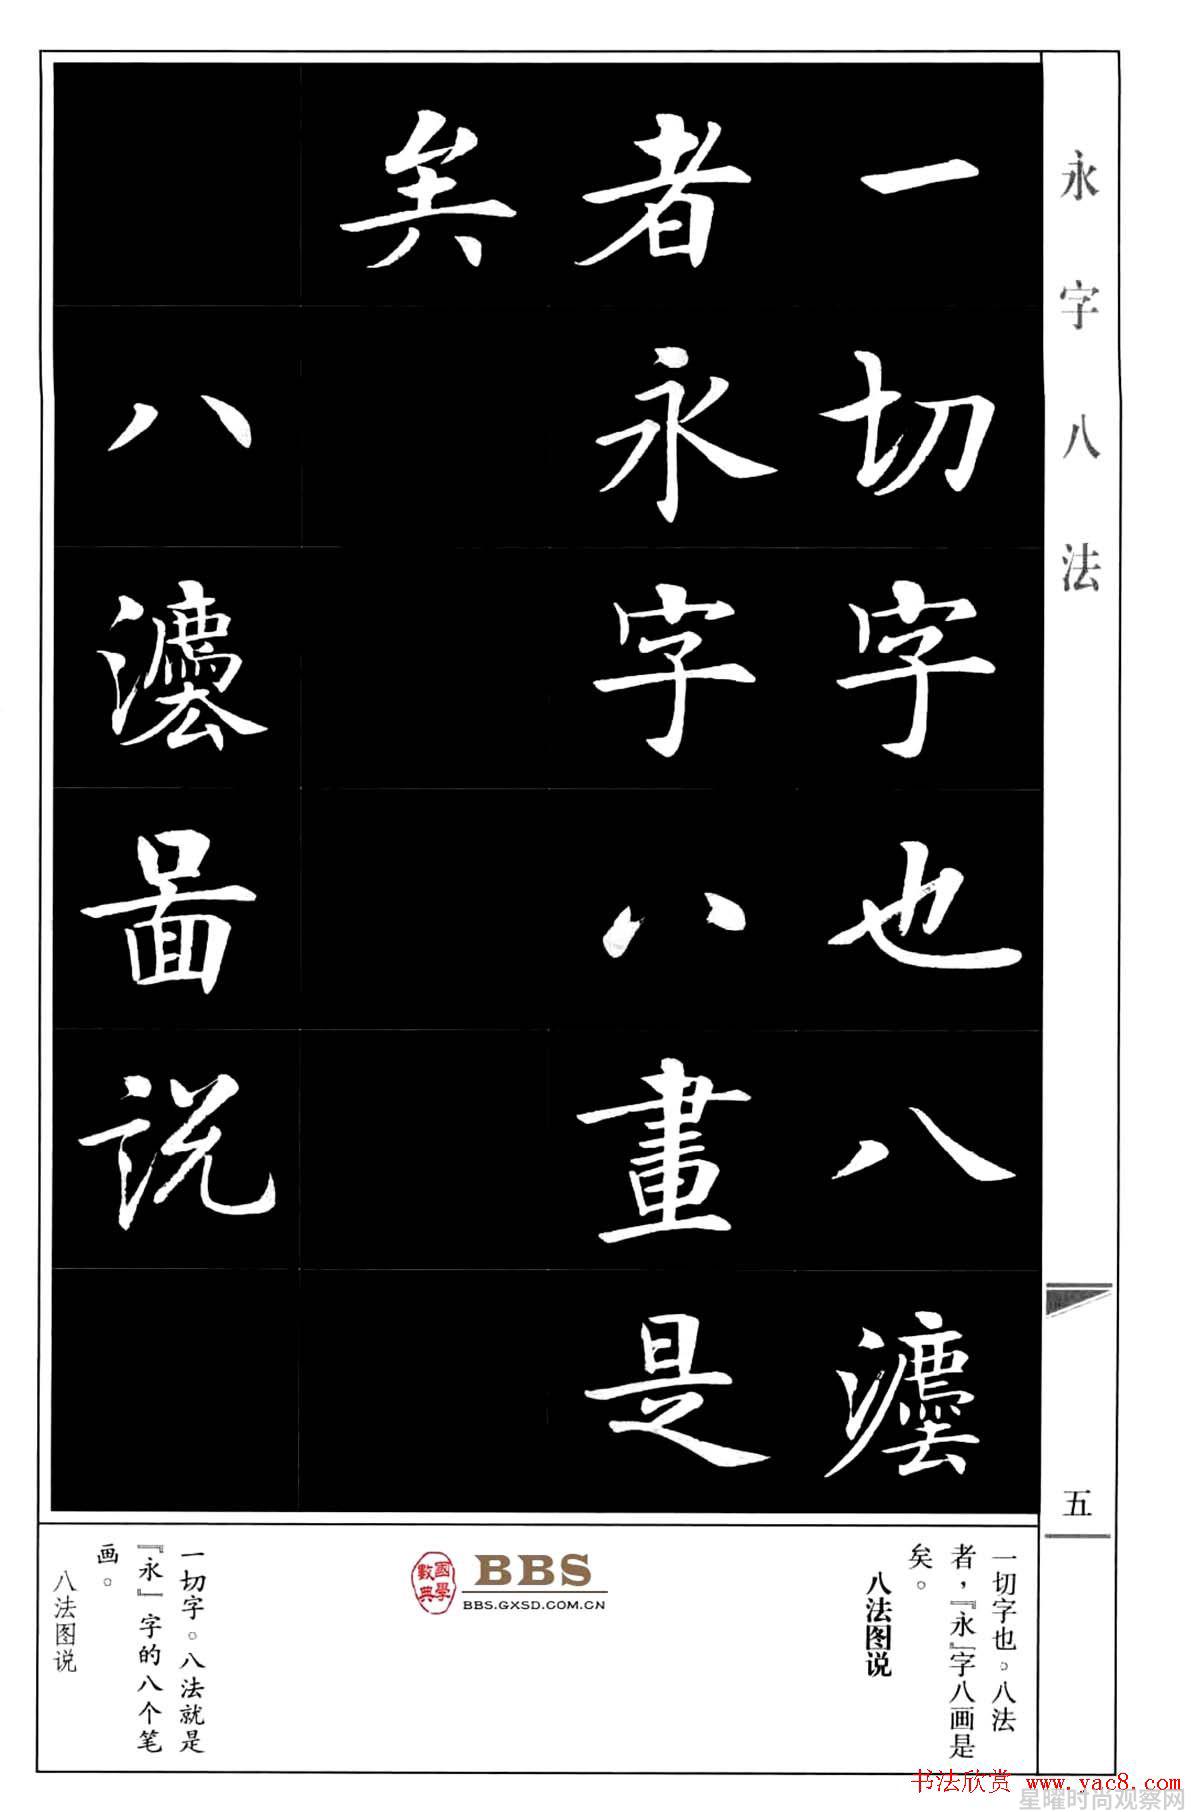 永字八法
一切字也八灋
者永字八畫是
矣
八灋啚説
五
一切字也。八法
者，『永』字八画是
矣。
八法图说
國學數典
BBS
BBS.GXSD.COM.CN
一切字。八法就是
『永』字的八个笔
画。
八法图说
书法欣赏 www.yac8.com
星曜时尚观察网